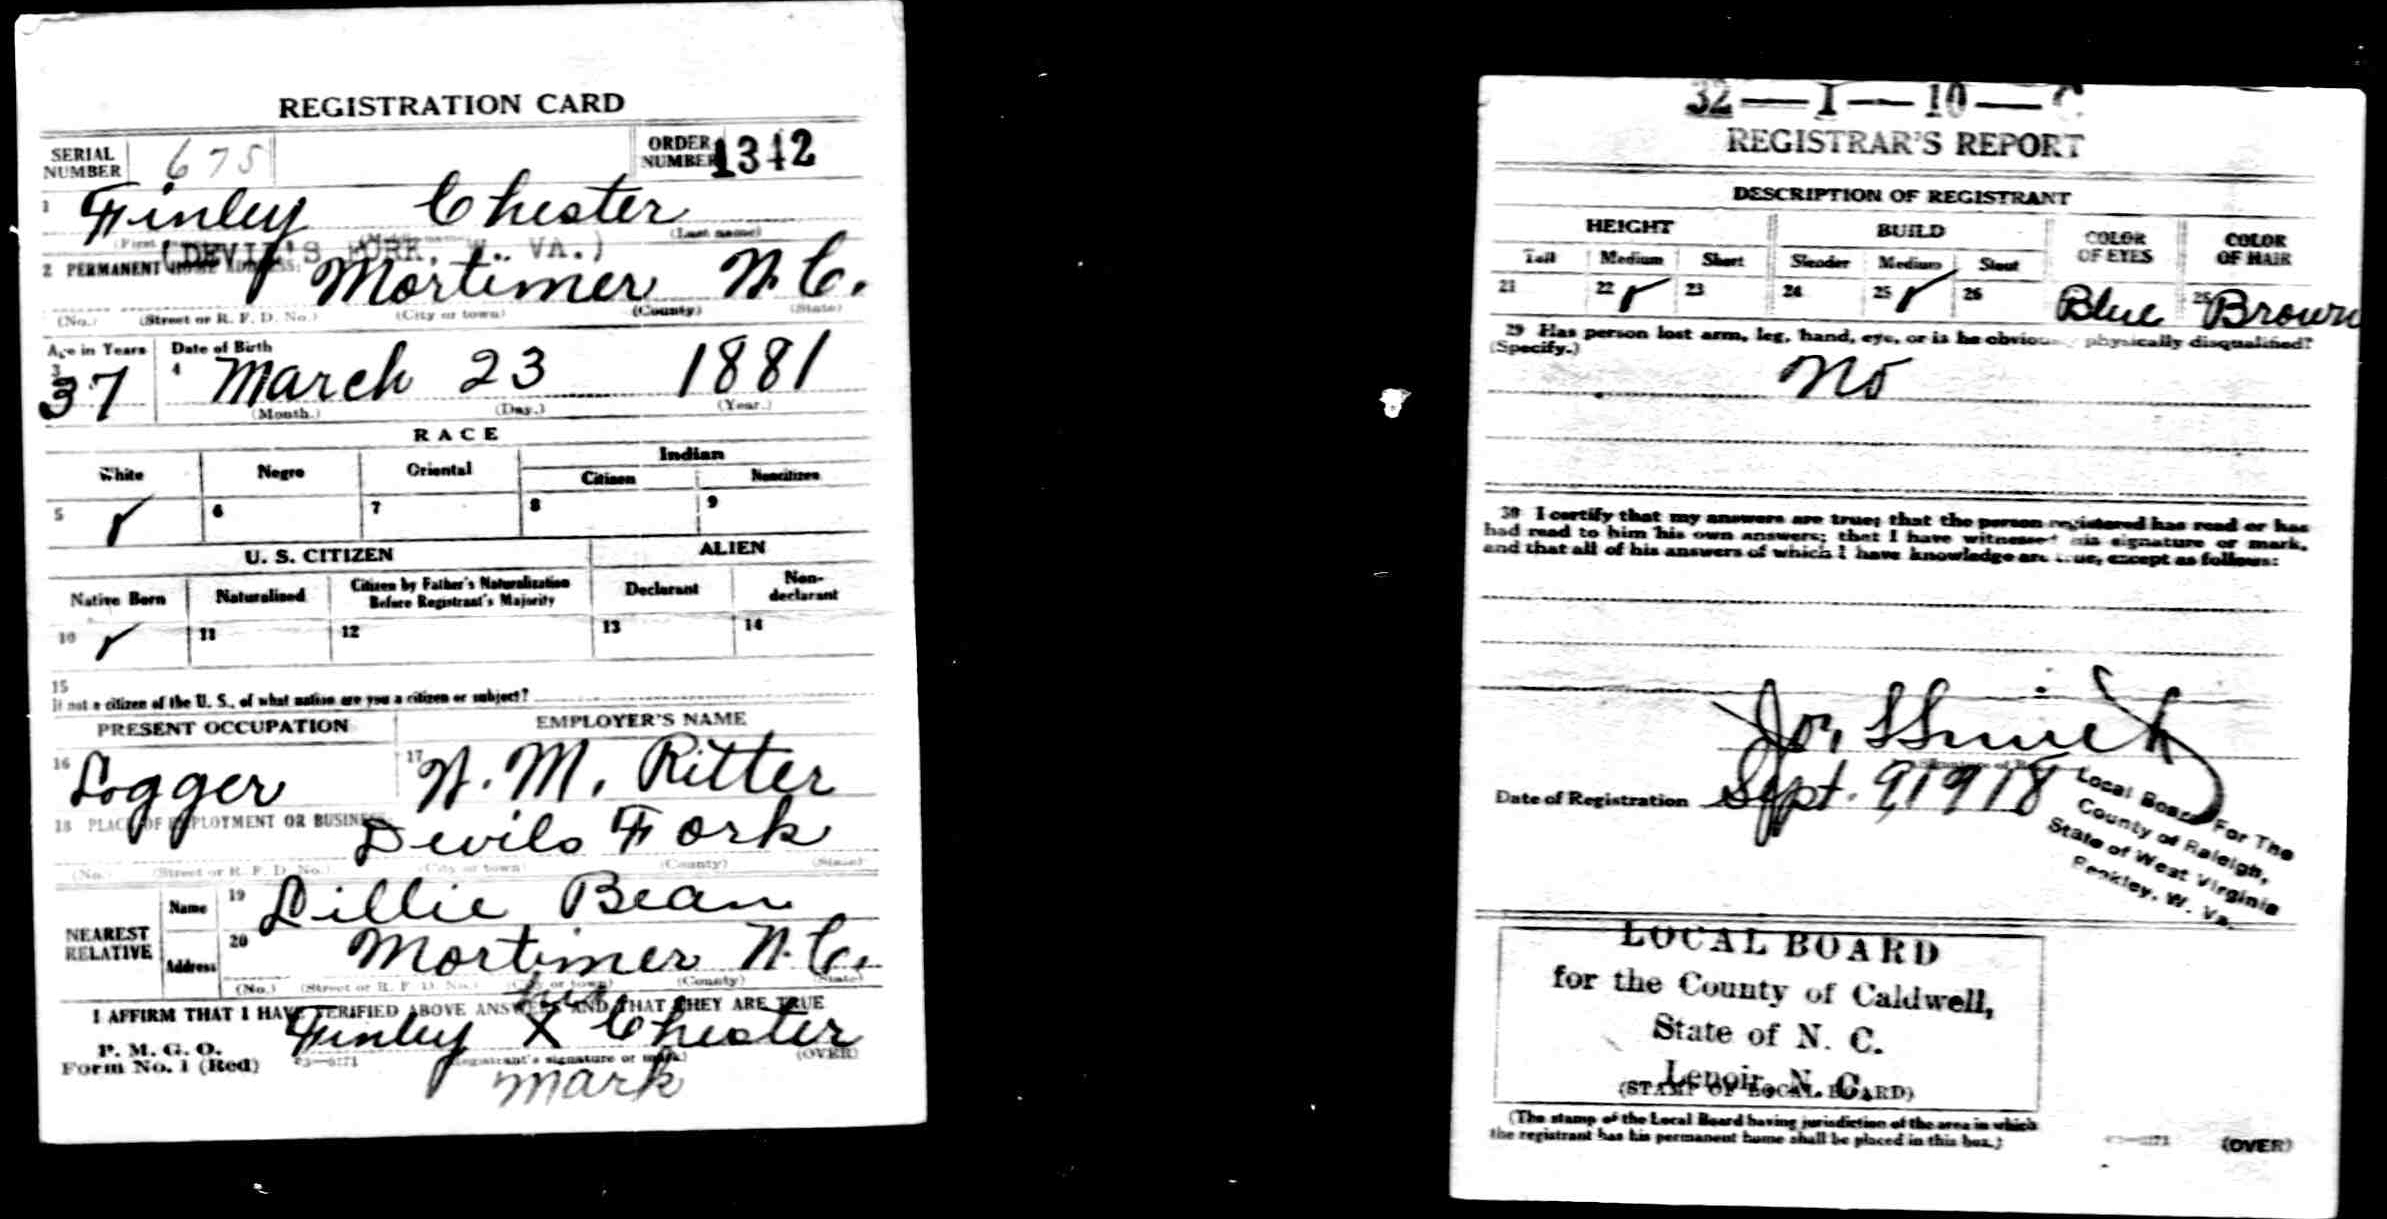 REGISTRATION CARD
SERIAL NUMBER 675 ORDER NUMBER 1342
1 Finley Chester
(First (Middle name) (Last name)
(DEVIL'S FORK, W. VA.)
2 PERMANENT HOME ADDRESS:
Mortimer N.C.
(No.) (Street or R. F. D. No.) (City or town) (County) (State)
Age in Years Date of Birth
3 37 4 March 23 1881
(Month.) (Day.) (Year.)
RACE
White Negro Oriental Indian
Citizen Noncitizen
5 ✓ 6 7 8 9
U. S. CITIZEN ALIEN
Native Born Naturalized Citizen by Father's Naturalization Before Registrant's Majority Declarant Non-declarant
10 ✓ 11 12 13 14
15
If not a citizen of the U. S., of what nation are you a citizen or subject?
PRESENT OCCUPATION EMPLOYER'S NAME
16 Logger 17 W. M. Ritter
18 PLACE OF EMPLOYMENT OR BUSINESS:
Devils Fork
(No.) (Street or R. F. D. No.) (City or town) (County) (State)
NEAREST RELATIVE
Name 19 Lillie Bean
Address 20 Mortimer N.C.
(No.) (Street or R. F. D. No.) (City or town) (County) (State)
I AFFIRM THAT I HAVE VERIFIED ABOVE ANSWERS AND THAT THEY ARE TRUE
his
P. M. G. O.
Form No. 1 (Red)
Finley X Chester
(Registrant's signature or mark) (OVER)
mark
32—1—10—C
REGISTRAR'S REPORT
DESCRIPTION OF REGISTRANT
HEIGHT BUILD COLOR OF EYES COLOR OF HAIR
Tall Medium Short Slender Medium Stout
21 22 ✓ 23 24 25 ✓ 26 Blue 28 Brown
29 Has person lost arm, leg, hand, eye, or is he obviously physically disqualified?
(Specify.)
No
30 I certify that my answers are true; that the person registered has read or has
had read to him his own answers; that I have witnessed his signature or mark,
and that all of his answers of which I have knowledge are true, except as follows:
Date of Registration Sept. 9 1918
Local Board For The
County of Raleigh,
State of West Virginia
Beckley, W. Va.
LOCAL BOARD
for the County of Caldwell,
State of N. C.
Lenoir, N. C.
(STAMP OF LOCAL BOARD)
(The stamp of the Local Board having jurisdiction of the area in which
the registrant has his permanent home shall be placed in this box.)
(OVER)